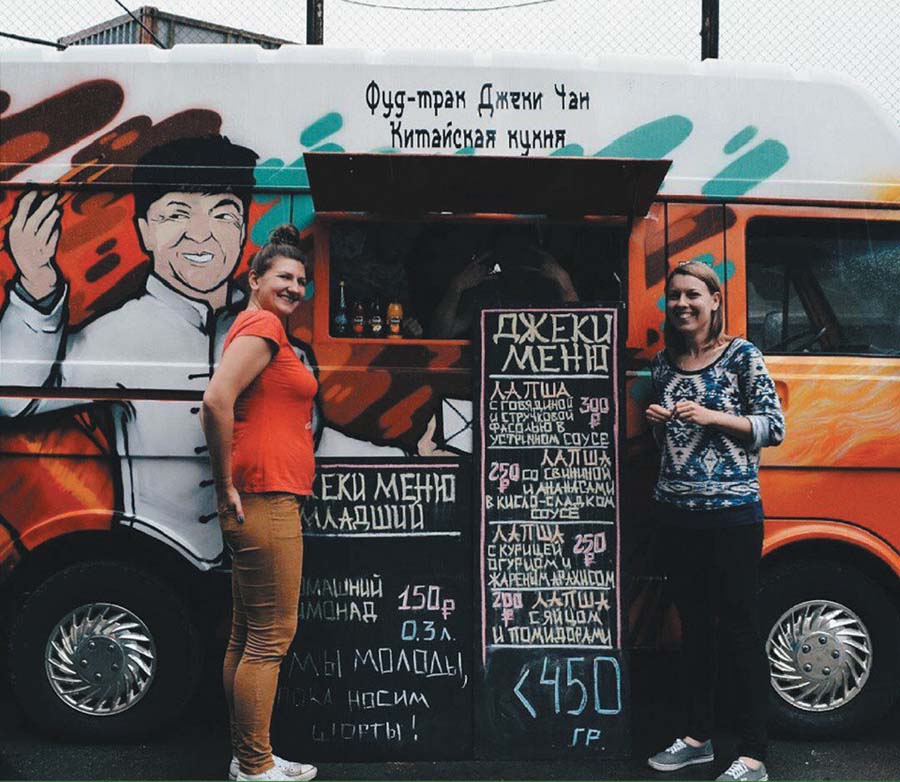 Фуд-трак Джеки Чан
Китайская кухня
ДЖЕКИ
МЕНЮ
ЛАПША
С ГОВЯДИНОЙ 300 ₽
И СТРУЧКОВОЙ
ФАСОЛЬЮ В
УСТРИЧНОМ СОУСЕ
250 ₽ ЛАПША
СО СВИНИНОЙ
И АНАНАСАМИ
В КИСЛО-СЛАДКОМ
СОУСЕ
ЛАПША
С КУРИЦЕЙ 250 ₽
ОГУРЦОМ И
ЖАРЕНИМ АРАХИСОМ
200 ₽ ЛАПША
С ЯЙЦОМ
И ПОМИДОРАМИ
<450
ГР.
ЖЕКИ МЕНЮ
МЛАДШИЙ
ОМАШНИЙ
ИМОНАД 150 ₽
0.3 Л.
МЫ МОЛОДЫ,
ПОКА НОСИМ
ШОРТЫ!